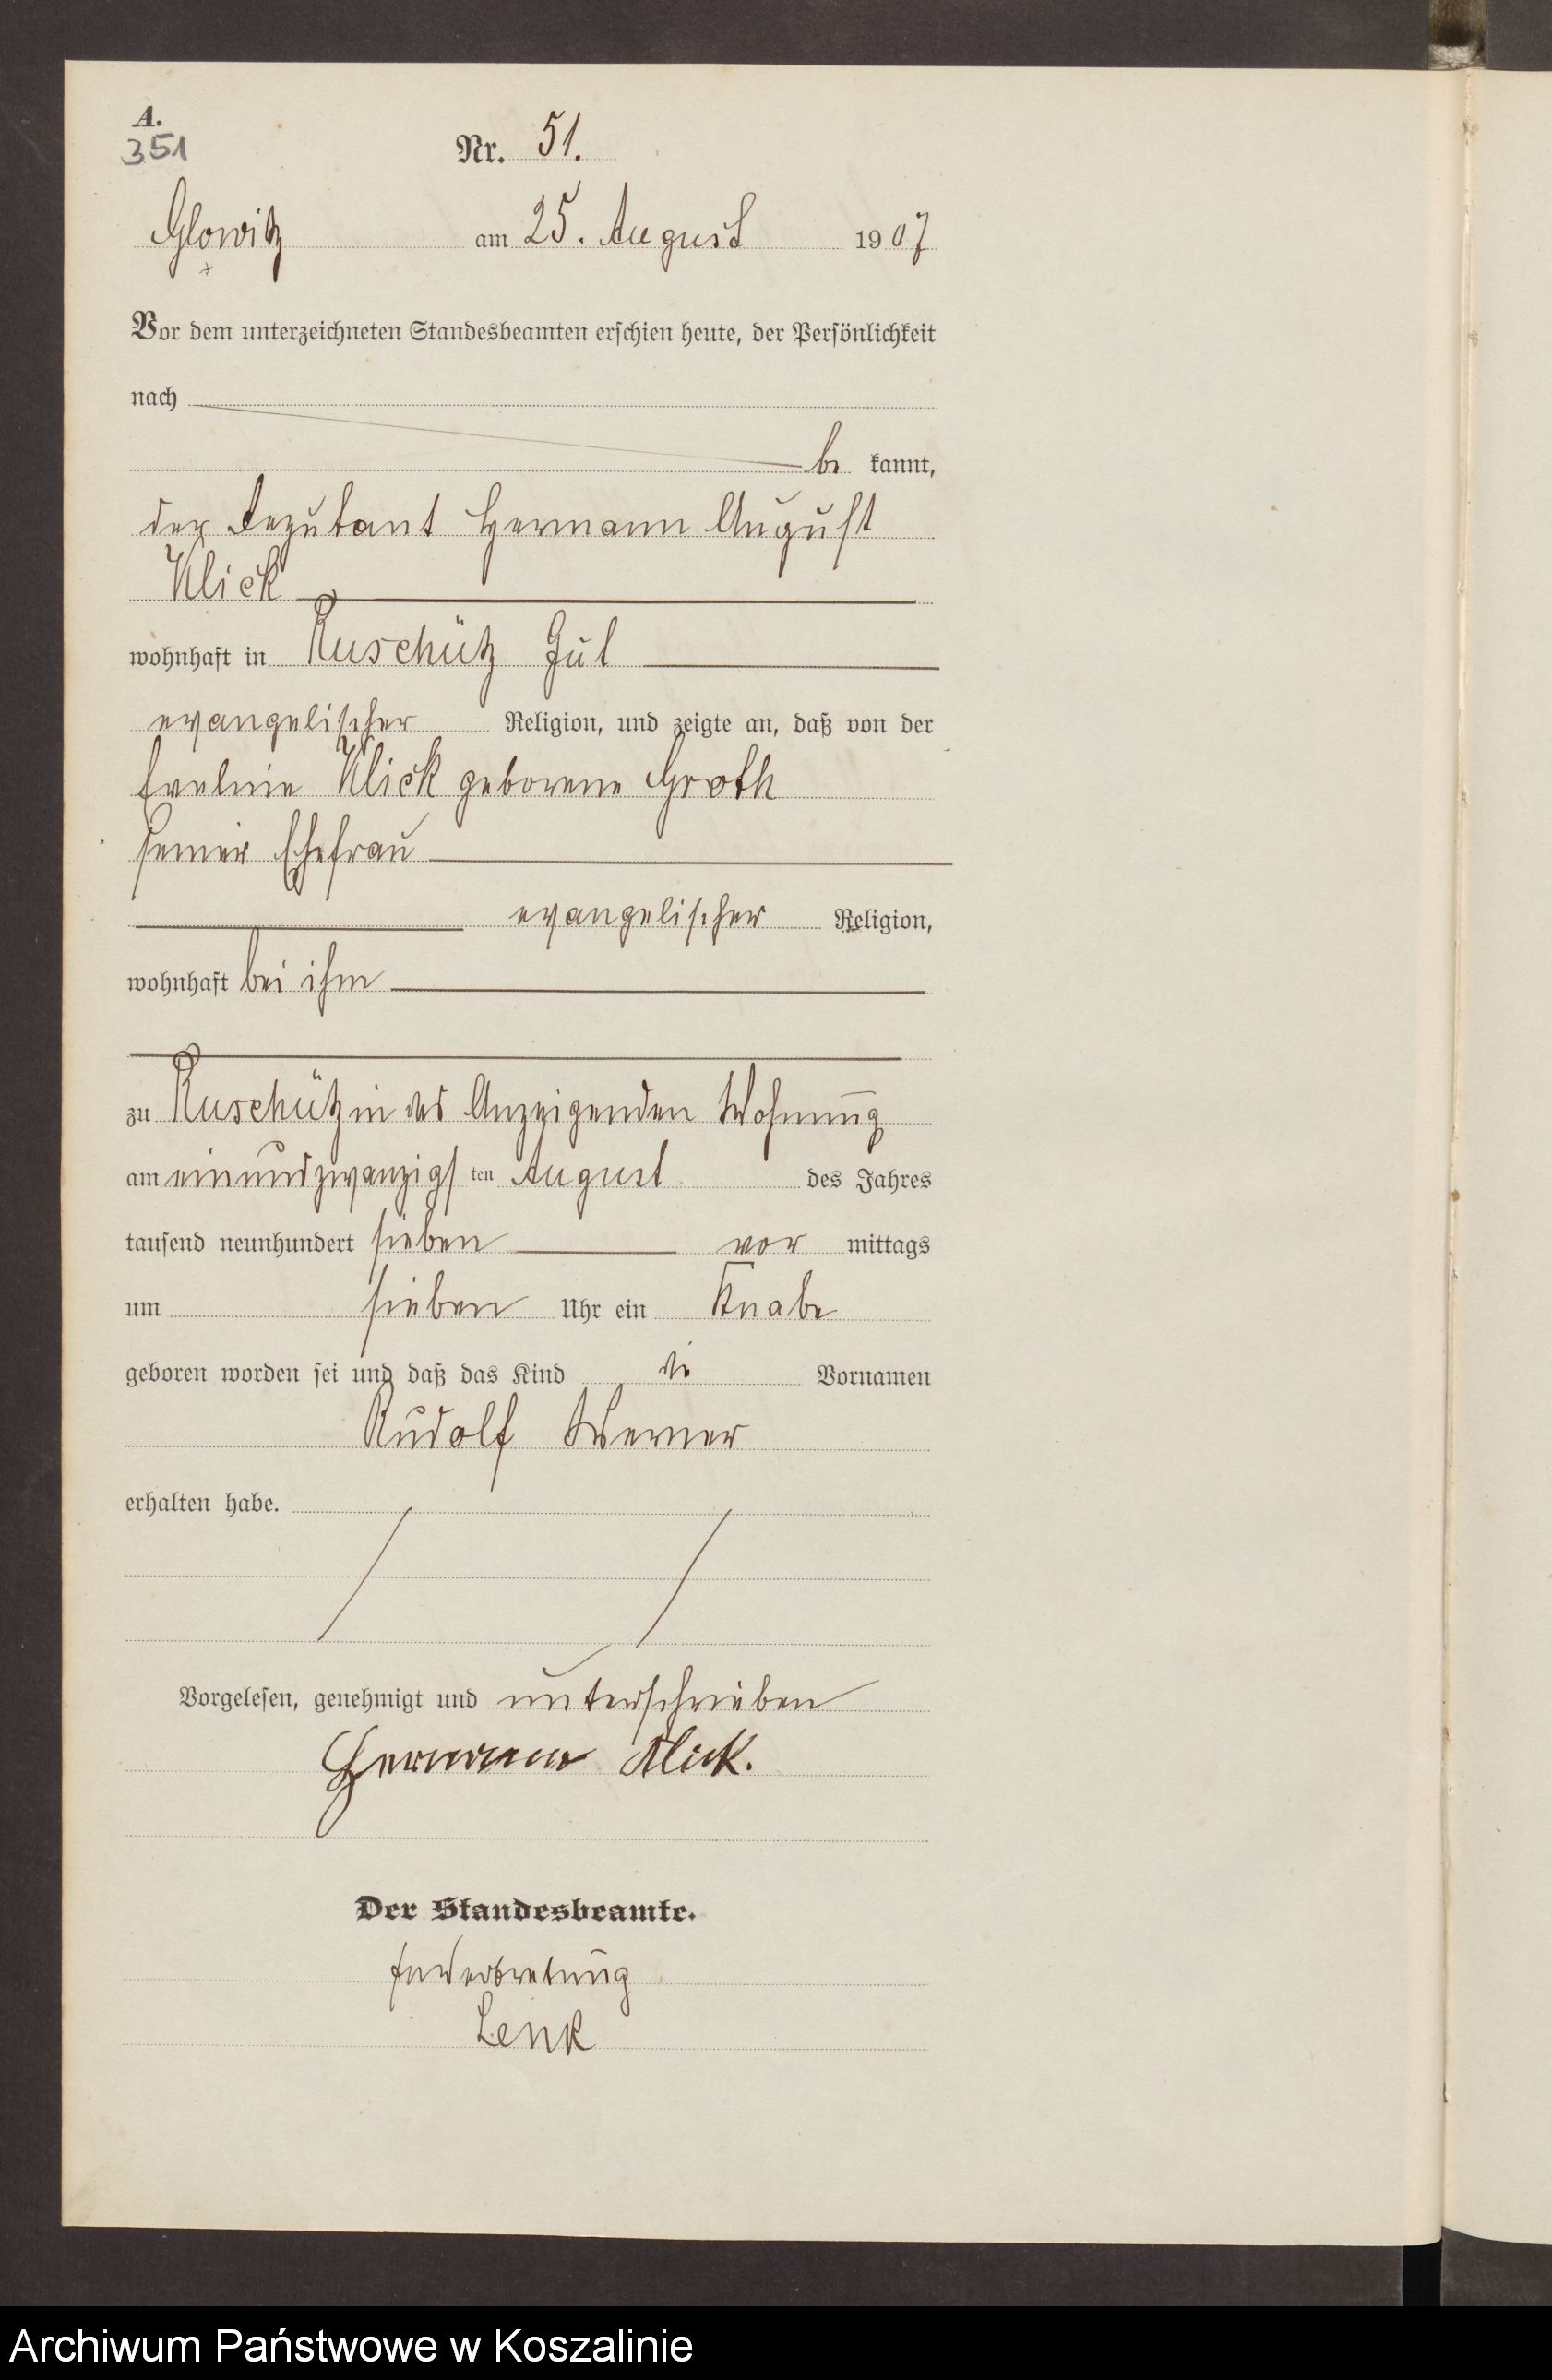 A.
351
Nr. 51.
Glowitz am 25. August 1907
Vor dem unterzeichneten Standesbeamten erschien heute, der Persönlichkeit
nach
be kannt,
der Deputant Hermann August
Klick
wohnhaft in Ruschütz Gut
evangelischer Religion, und zeigte an, daß von der
Eveline Klick geborene Groth
seiner Ehefrau
evangelischer Religion,
wohnhaft bei ihm
zu Ruschütz in des Anzeigenden Wohnung
am einundzwanzigsten August des Jahres
tausend neunhundert sieben vor mittags
um sieben Uhr ein Knabe
geboren worden sei und daß das Kind die Vornamen
Rudolf Werner
erhalten habe.
Vorgelesen, genehmigt und unterschrieben
Hermann Klick.
Der Standesbeamte.
In Vertretung
Lenk
Archiwum Państwowe w Koszalinie